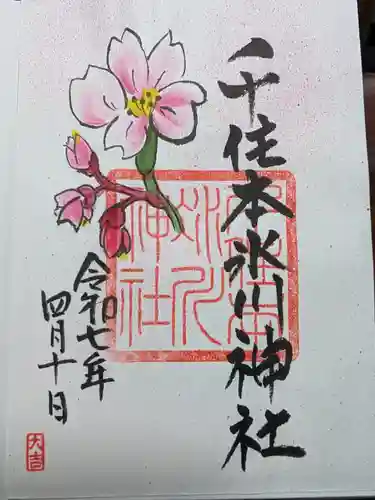 千住本氷川神社
令和七年
四月十日
大吉